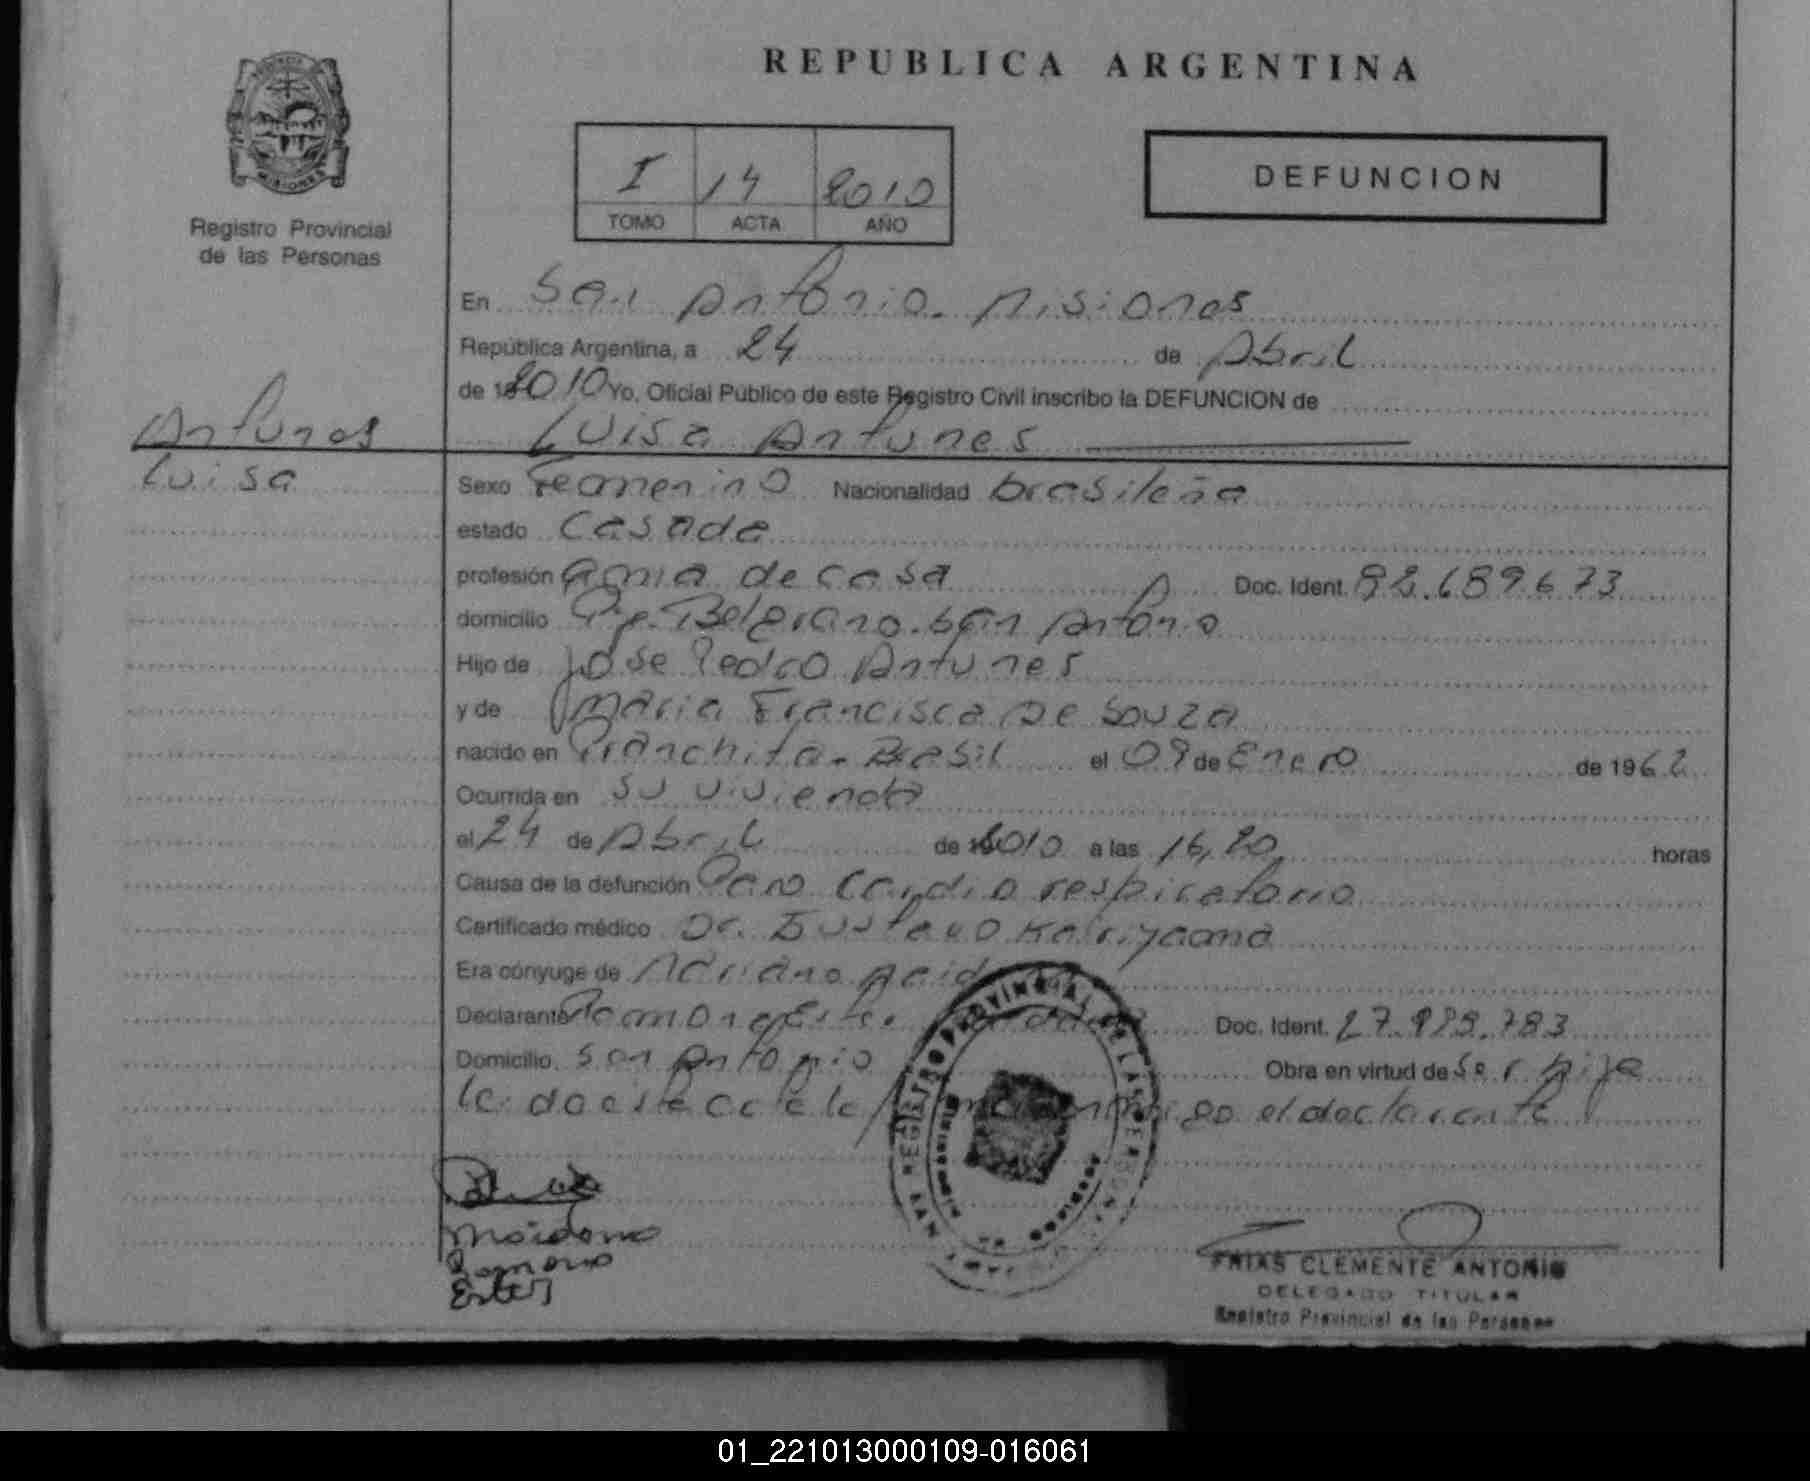 REPUBLICA ARGENTINA
PROVINCIA
MISIONES
Registro Provincial
de las Personas
I 14 2010
TOMO ACTA AÑO
DEFUNCION
En San Antonio. Misiones
República Argentina, a 24 de Abril
de 2010 Yo, Oficial Público de este Registro Civil inscribo la DEFUNCION de
Antunes
Luisa Antunes
Luisa
Sexo Femenino Nacionalidad brasileña
estado Casada
profesión ama de casa Doc. Ident. 92.689.673
domicilio Pje. Belgrano. San Antonio
Hijo de Jose Pedro Antunes
y de Maria Francisca De Souza
nacido en Pranchita. Brasil el 09 de Enero de 1962
Ocurrida en su vivienda
el 24 de Abril de 2010 a las 16,20 horas
Causa de la defunción Paro Cardio respiratorio
Certificado médico Dr. Gustavo Kariyama
Era cónyuge de Adriano
Declarante Ramona Doc. Ident.
Domicilio San Antonio Obra en virtud de Ser hija
el declarante
Ramona
Ester
REGISTRO PROVINCIAL DE LAS PERSONAS
FRIAS CLEMENTE ANTONIO
DELEGADO TITULAR
Registro Provincial de las Personas
01_221013000109-016061